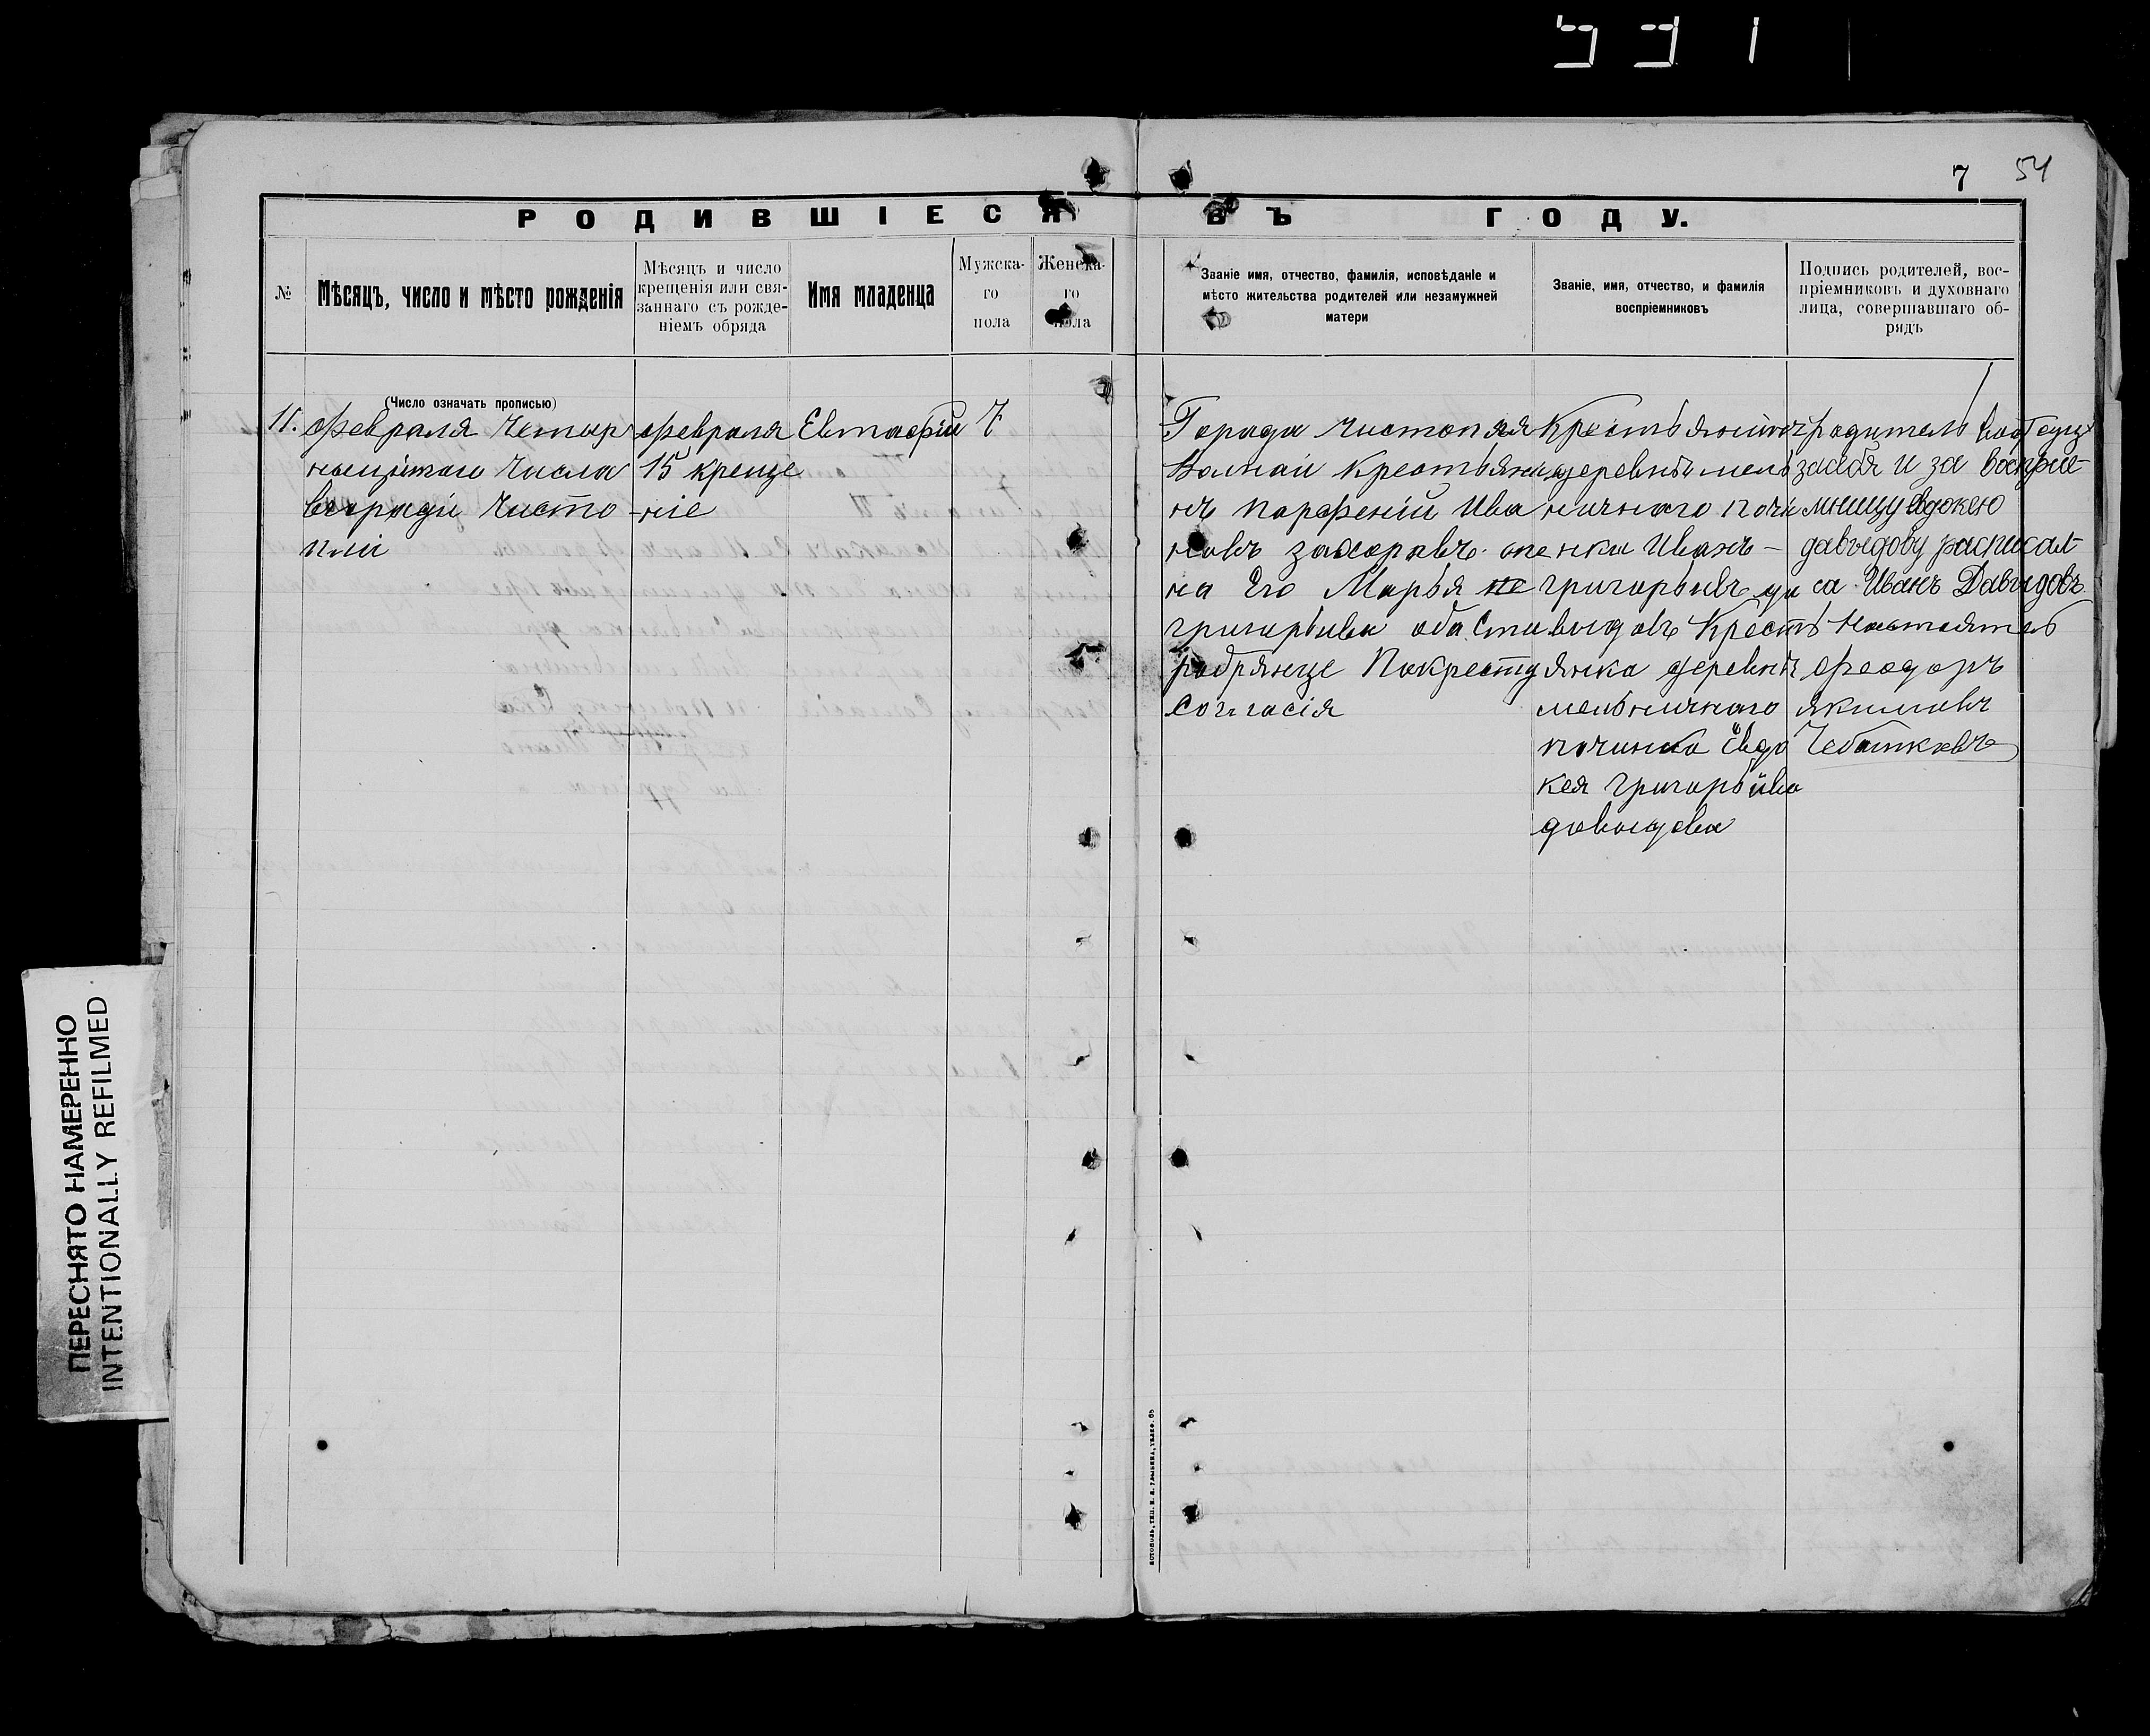 7 54
РОДИВШІЕСЯ ВЪ ГОДУ.
№
Мѣсяцъ, число и мѣсто рожденія
Мѣсяцъ и число
крещенія или свя-
заннаго съ рожде-
ніемъ обряда
Имя младенца
Мужска-
го
пола
Женска-
го
пола
Званіе имя, отчество, фамилія, исповѣданіе и
мѣсто жительства родителей или незамужней
матери
Званіе, имя, отчество, и фамилія
воспріемниковъ
Подпись родителей, вос-
пріемниковъ и духовнаго
лица, совершавшаго об-
рядъ
(Число означать прописью)
11.
февраля Четыр
числа
Чисто
февраля
15 креще
-ніе
7
Города Чистополя
крестьяни
нъ Парфеній Ива
новъ Захоровъ
на Его Марья
григорьива оба Ста
робрянце
согласія
деревны мель
ничнаго почи
нка Иванъ -
григорьивъ да
выдовъ Кресть
янка деревни
мельничнаго
починка Евдо
кея григорьива
довыдова
родитель
засебя и за воспріе
мницу Евдокею
давыдову расписал
ся Иванъ Давыдовъ
Настоятель
феодоръ
якимовъ
Чебатковъ
ПЕРЕСНЯТО НАМЕРЕННО
INTENTIONALLY REFILMED